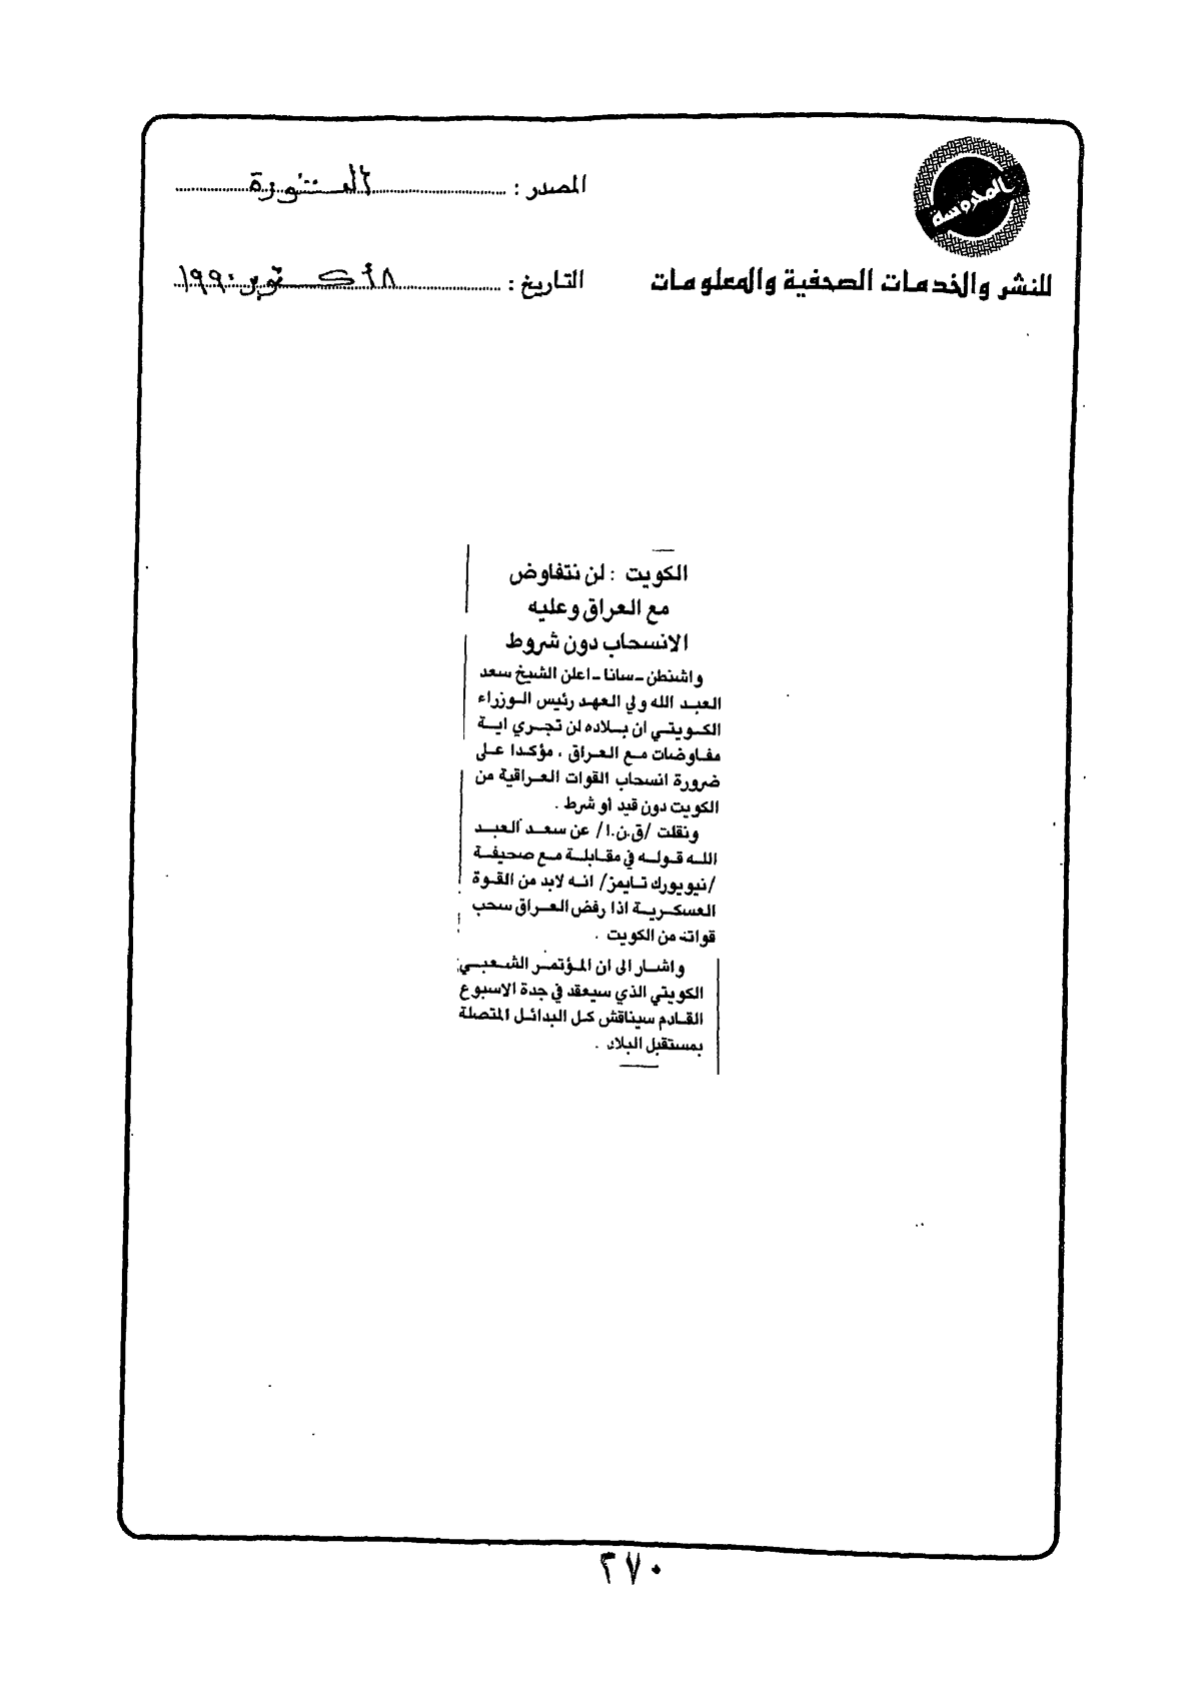 المحروسة
المصدر : الثورة
للنشر والخدمات الصحفية والمعلومات
التاريخ : ٨ أكتوبر ١٩٩٠
الكويت : لن نتفاوض
مع العراق وعليه
الانسحاب دون شروط
واشنطن ـ سانا ـ اعلن الشيخ سعد
العبد الله ولي العهد رئيس الوزراء
الكويتي ان بلاده لن تجري اية
مفاوضات مع العراق ، مؤكدا على
ضرورة انسحاب القوات العراقية من
الكويت دون قيد أو شرط .
ونقلت /ق.ن.ا/ عن سعد العبد
الله قوله في مقابلة مع صحيفة
/نيويورك تايمز/ انه لابد من القوة
العسكرية اذا رفض العراق سحب
قواته من الكويت .
واشار الى ان المؤتمر الشعبي
الكويتي الذي سيعقد في جدة الاسبوع
القادم سيناقش كل البدائل المتصلة
بمستقبل البلاد .
٢٧٠